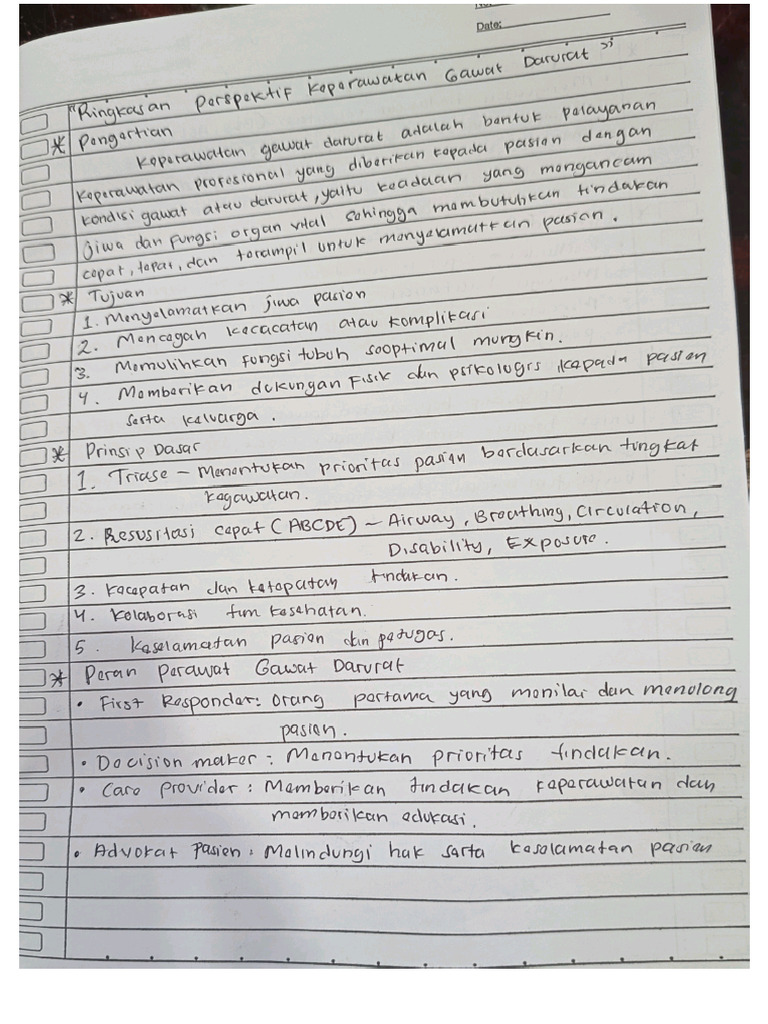 No.
Date:
"Ringkasan Perspektif Keperawatan Gawat Darurat"
* Pengertian
Keperawatan gawat darurat adalah bentuk pelayanan
keperawatan profesional yang diberikan kepada pasien dengan
kondisi gawat atau darurat, yaitu keadaan yang mengancam
jiwa dan fungsi organ vital sehingga membutuhkan tindakan
cepat, tepat, dan terampil untuk menyelamatkan pasien.
* Tujuan
1. Menyelamatkan jiwa pasien
2. Mencegah kecacatan atau komplikasi
3. Memulihkan fungsi tubuh seoptimal mungkin.
4. Memberikan dukungan fisik dan psikologis kepada pasien
serta keluarga.
* Prinsip Dasar
1. Triase - Menentukan prioritas pasien berdasarkan tingkat
kegawatan.
2. Resusitasi cepat (ABCDE) - Airway, Breathing, Circulation,
Disability, Exposure.
3. Kecepatan dan ketepatan tindakan.
4. Kolaborasi tim kesehatan.
5. Keselamatan pasien dan petugas.
* Peran Perawat Gawat Darurat
• First Responder: Orang pertama yang menilai dan menolong
pasien.
• Decision maker: Menentukan prioritas tindakan.
• Care Provider: Memberikan tindakan keperawatan dan
memberikan edukasi.
• Advokat Pasien: Melindungi hak serta keselamatan pasien